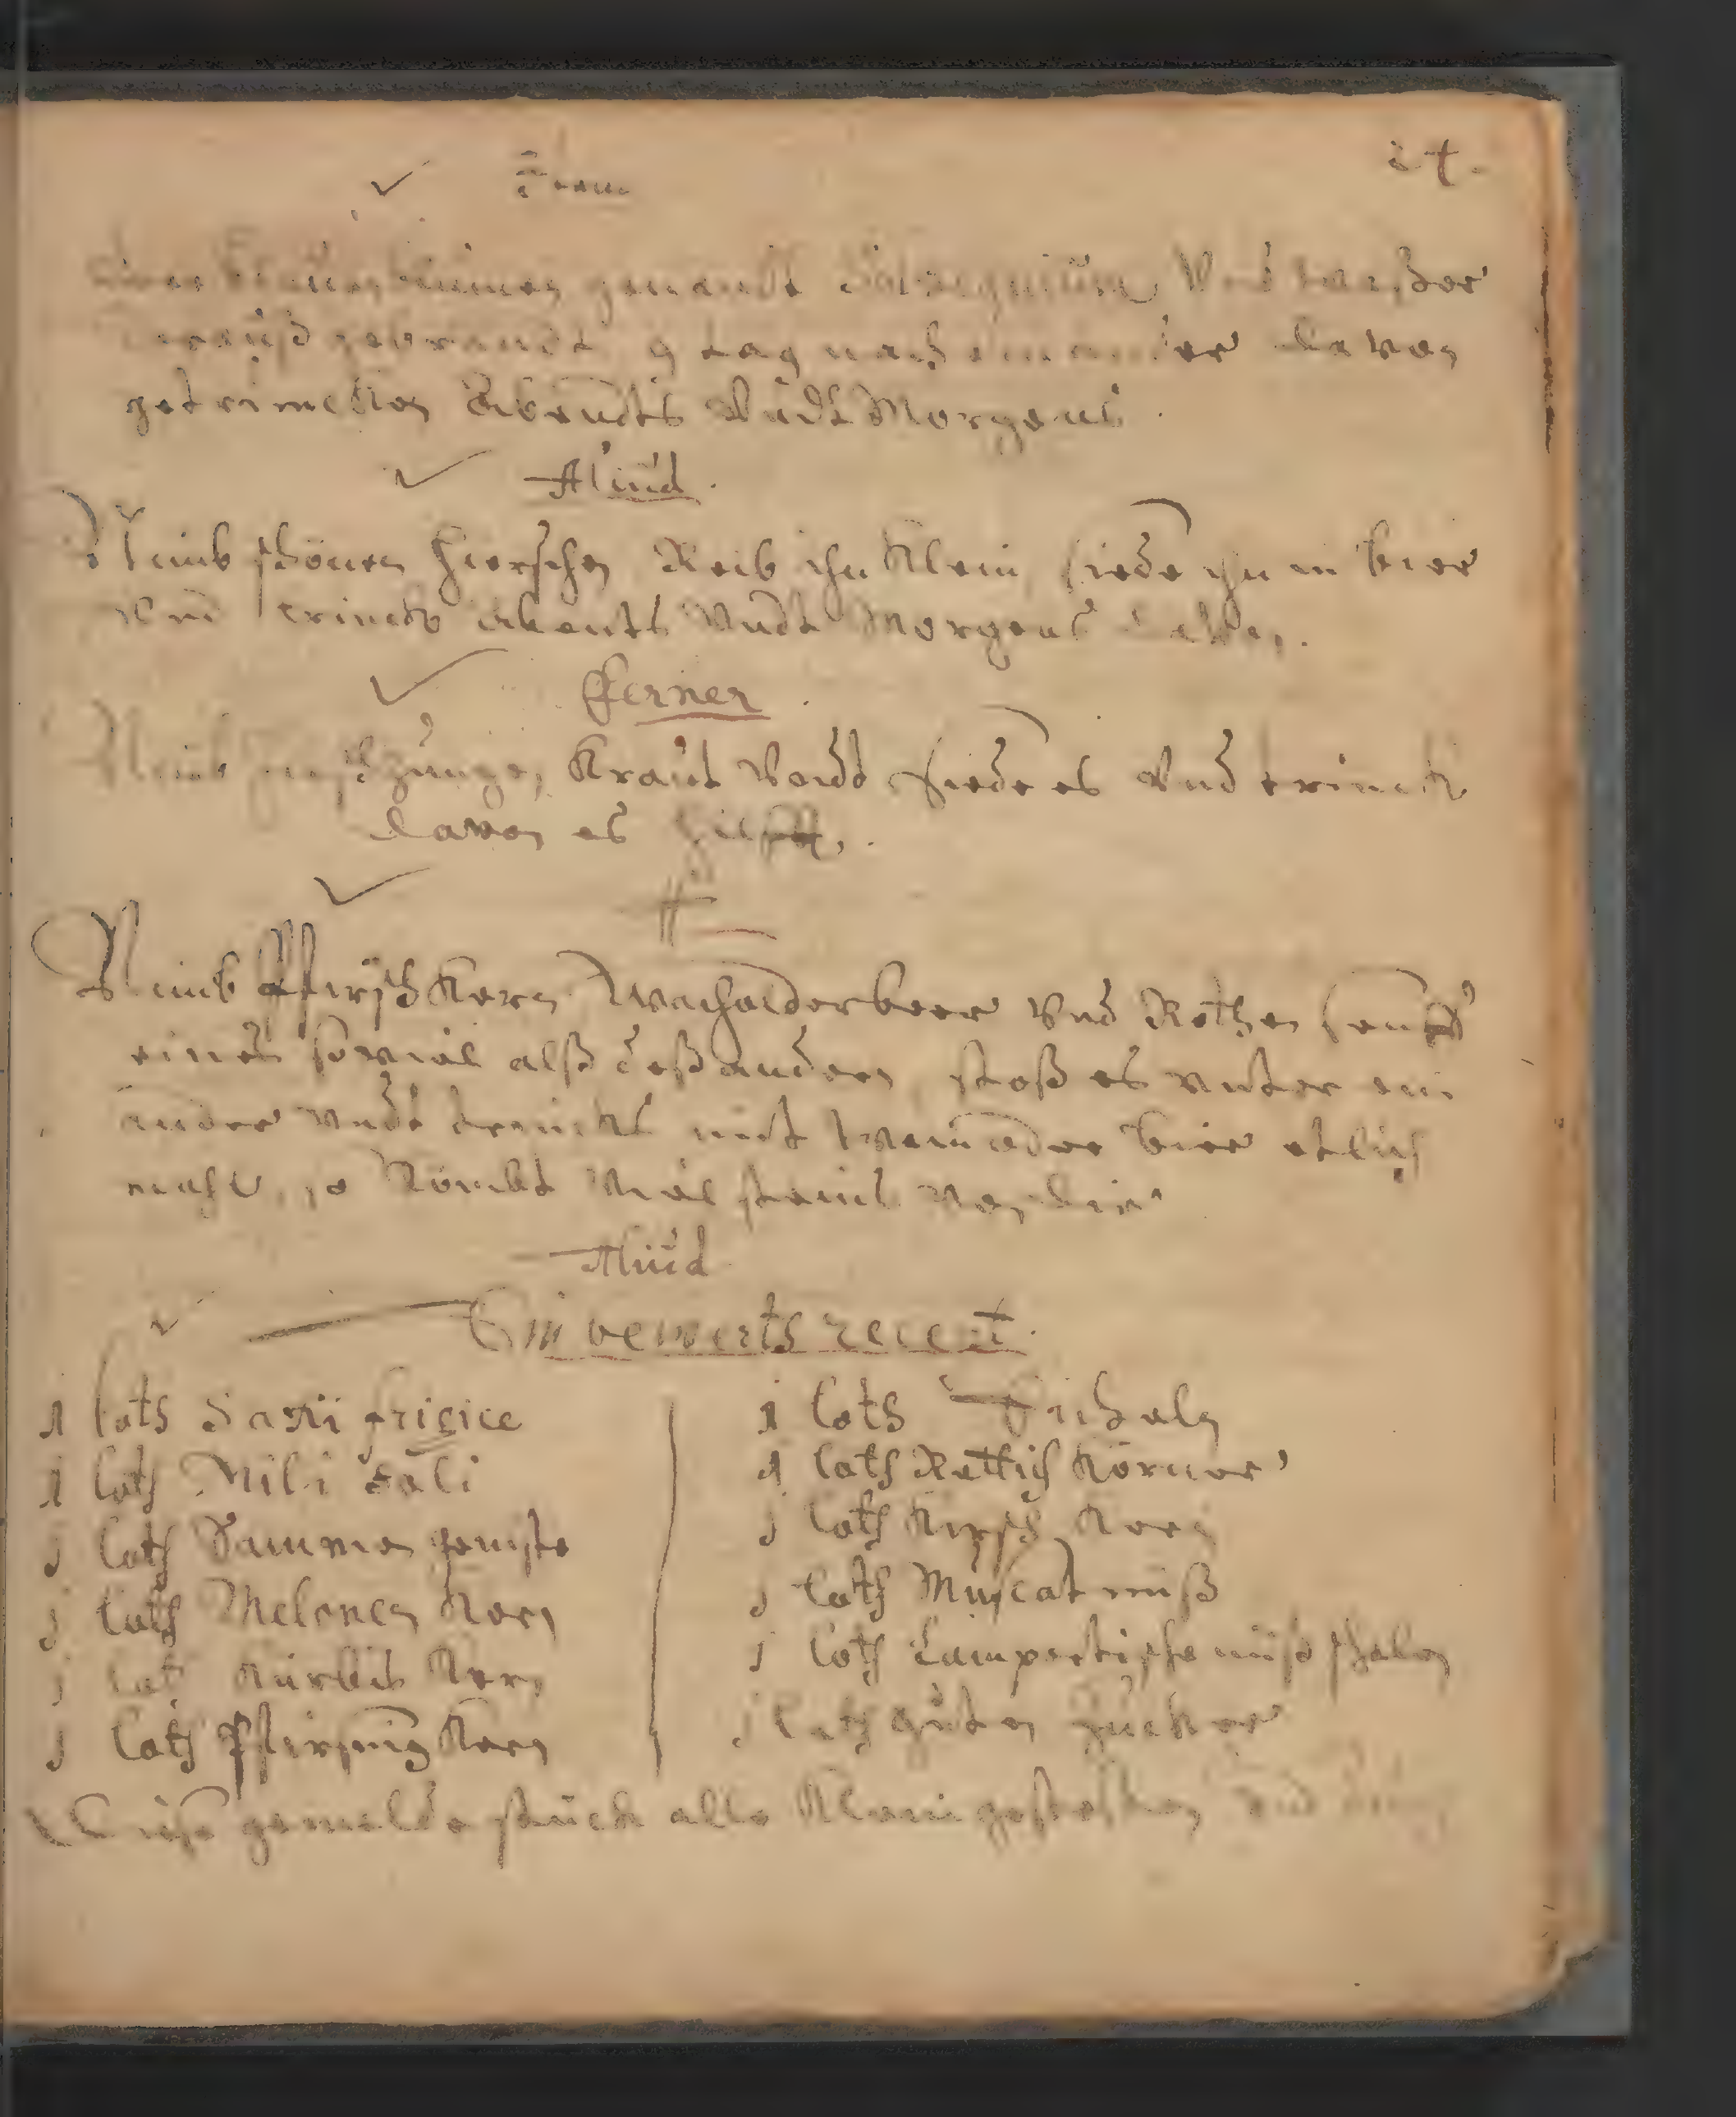 Item
genandt Vnd waßer
gebrandt 9 tag nach einander davon
getruncken Abendts Vndt Morgens.
Aliud.
Nimb schönen hierschen Reib ihn klein, siede ihn in bier
Vnd trinckh abents Vndt Morgens davon.
fferner.
Nimb Kraut Vndt siede es Vnd trinck
davon es hilfft.
Nimb Pfirsch Kern Wacholderbeer Vnd Rothen Senff
eines soviel alß deß andern, stoß es vnter ein
ander Vndt trinckhs mit wein oder bier etlich
mahl, so kombt viel stein von dir
Aliud
Ein bewerts recept.
1 loth Saxifrigice
1 loth Mili Soli
j loth
j loth Melonen Kern
j loth Kürbis Kern
j loth Pfirsing Kern
1 loth
1 loth Rettich Körner
j loth Kirsch Kern
j loth Muscat nuß
j loth Lampertische nuß schalen
j loth guten Zucker
Diese gemelde stuck alle klein gestoßen Vnd